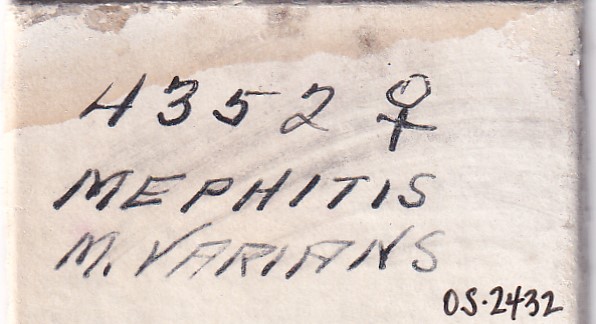 4352 ♀
MEPHITIS
M. VARIANS
OS-2432